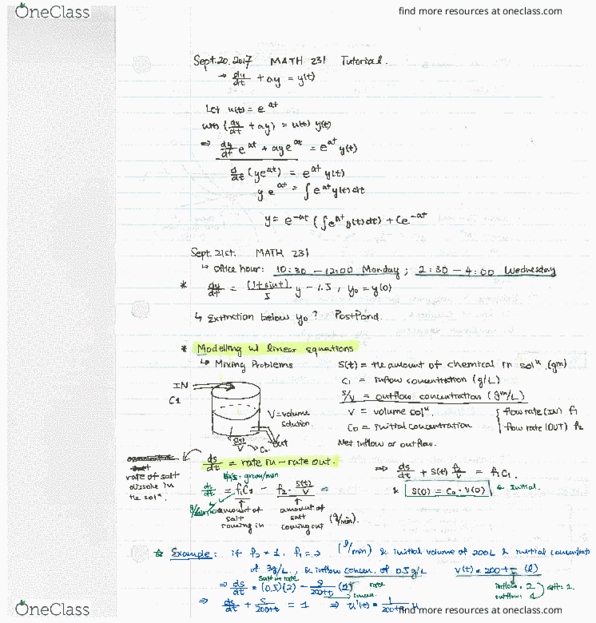 OneClass
find more resources at oneclass.com
Sept. 20. 2017 MATH 231 Tutorial.
→ dy/dt + ay = y(t)
Let u(t) = e^at
u(t) {dy/dt + ay} = u(t) y(t)
⇒ dy/dt e^at + aye^at = e^at y(t)
d/dt (ye^at) = e^at y(t)
y e^at = ∫ e^at y(t) dt
y = e^-at (∫ e^at y(t) dt) + Ce^-at
Sept. 21st. MATH 231
↳ Office hour: 10:30 – 12:00 Monday ; 2:30 – 4:00 Wednesday
* dy/dt = (1+sint)/5 y – 1.5, y₀ = y(0)
↳ Extinction below y₀? PostPond.
* Modelling w/ linear equations
↳ Mixing Problems
S(t) = the amount of chemical in solⁿ. (gm)
C₁ = inflow concentration (g/L)
S/V = outflow concentration (gm/L)
V = volume solⁿ.
C₀ = initial concentration
flow rate (IN) f₁
flow rate (OUT) f₂
Net inflow or outflow.
IN
C1
V = volume solution
S(t)/V
C₀
out
ds/dt = rate in – rate out.
rate of salt dissolve in the solⁿ.
ds/dt = f₁C₁ – f₂ · S(t)/V
amount of salt coming in
amount of salt coming out
(g/min).
⇒ ds/dt + S(t) f₂/V = f₁C₁
& S(0) = C₀ · V(0) ← Initial.
☆ Example: if f₂ = 1, f₁ = 2 (l/min) & initial volume of 200L & initial concentration
of 3g/L, & inflow concen. of 0.5g/L V(t) = 200+t (l)
salt in rate
⇒ ds/dt = (0.5)(2) – S/200+t (1)
rate
inflow = 2
outflow = 1
⇒ ds/dt + S/200+t = 1 ⇒ u'(t) = 1/200+t u
OneClass
find more resources at oneclass.com